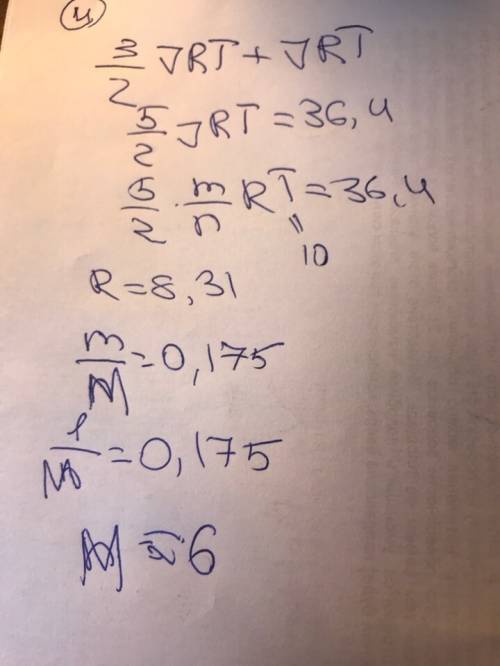 4
3/2 νRT + νRT
5/2 νRT = 36,4
5/2 · m/n RT = 36,4
10
R = 8,31
m/M = 0,175
1/M = 0,175
M ≈ 6